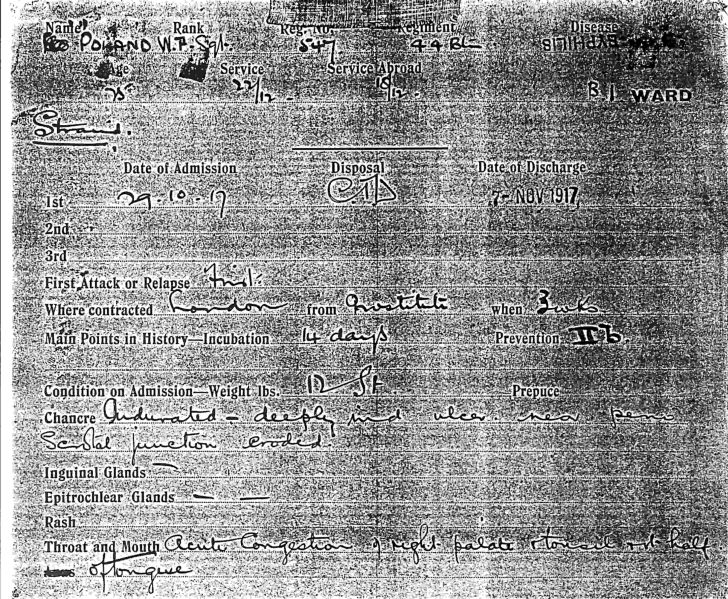 Name Rank Reg. No. Regiment Disease
POLAND W.T. Sgt. 547 44 Bn SYPHILIS
Age Service Service Abroad
25 22/12 18/12
B.1 WARD
Strand.
Date of Admission Disposal Date of Discharge
1st 29-10-17 7- NOV 1917
2nd
3rd
First Attack or Relapse First
Where contracted London from Prostitute when 3 wks
Main Points in History—Incubation 14 days Prevention II b.
Condition on Admission—Weight lbs. 12 St. Prepuce
Chancre Indurated – deeply ind ulcer near peno
Scrotal junction eroded
Inguinal Glands —
Epitrochlear Glands — —
Rash
Throat and Mouth Acute Congestion of right palate & tonsil & rt half
of tongue